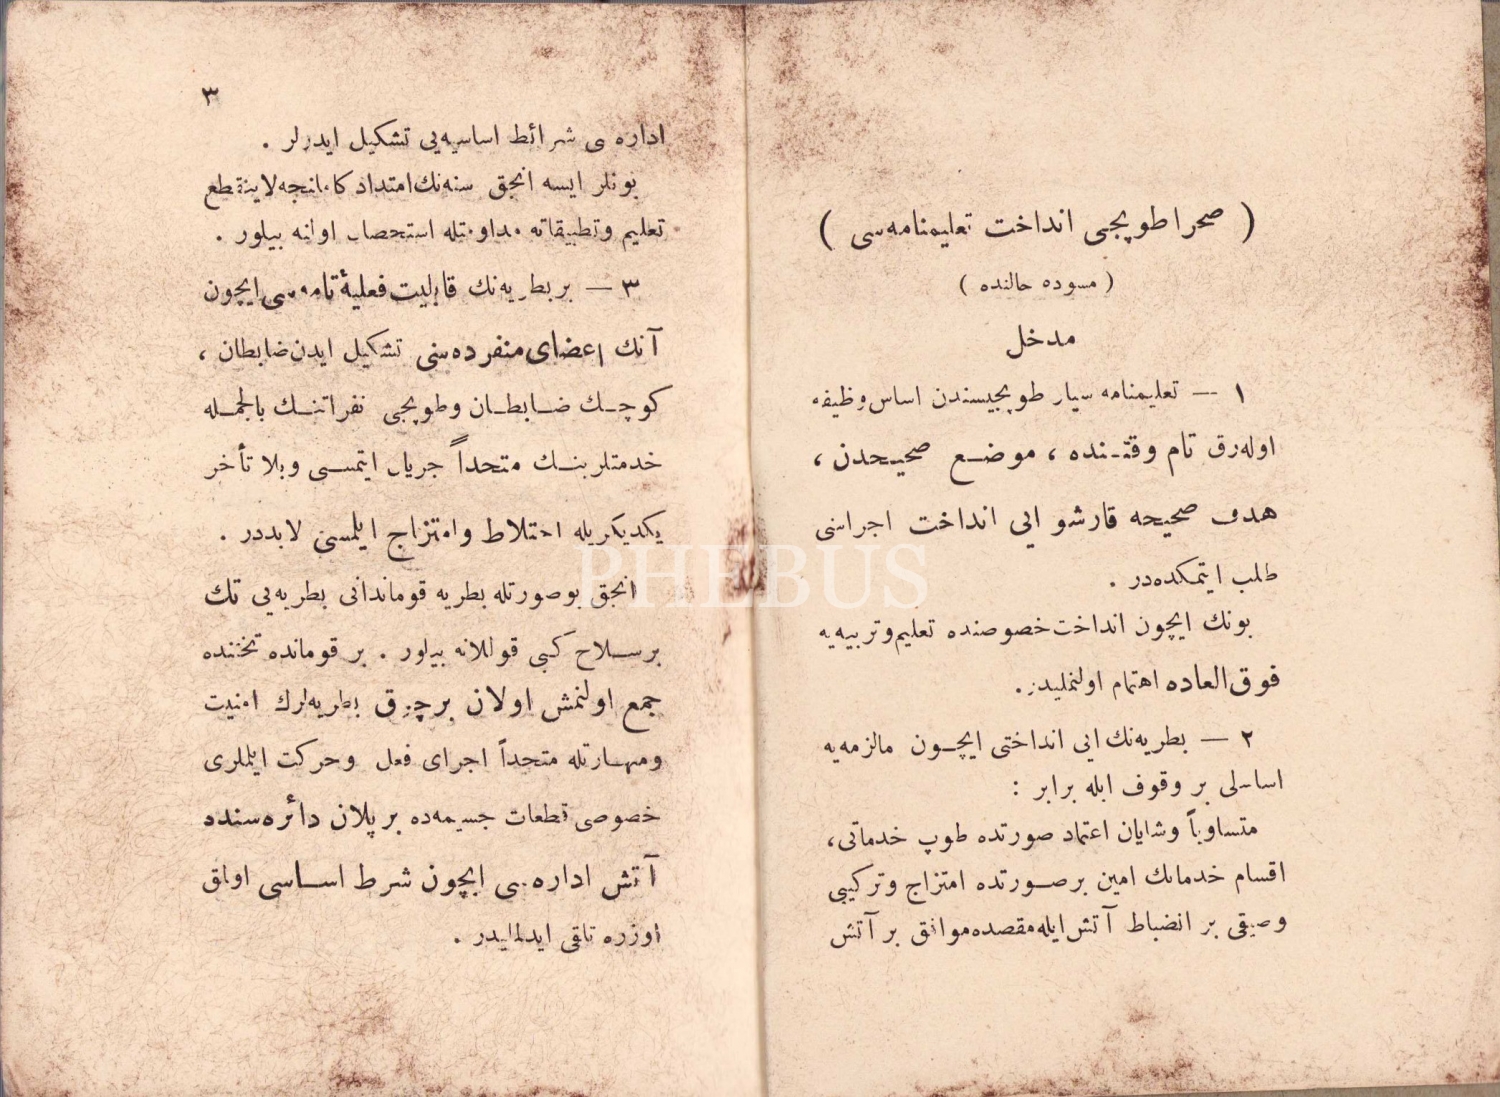 ( صحرا طوپجی انداخت تعلیمنامه‌سی )
( مسوده حالنده )
مدخل
١ — تعلیمنامه سیار طوپجیسندن اساس وظیفه
اوله‌رق تام وقتنده ، موضع صحیحدن ،
هدف صحیحه قارشو ایی انداخت اجراسنی
طلب ایتمکده‌در .
بونك ایچون انداخت خصوصنده تعلیم و تربیه‌یه
فوق العاده اهتمام اولنملیدر .
٢ — بطریه‌نك ایی انداختی ایچون مالزمه‌یه
اساسلی بر وقوف ایله برابر :
متساویاً وشایان اعتماد صورتده طوپ خدماتی،
اقسام خدماتك امین بر صورتده امتزاج وترکیبی
وصیقی بر انضباط آتش ایله مقصده موافق بر آتش
٣
اداره‌سی شرائط اساسیه‌یی تشکیل ایدرلر .
بونلر ایسه انجق سنه‌نك امتداد کاملنجه لاینقطع
تعلیم وتطبیقاته مداومتله استحصال اولنه بیلور .
٣ — بر بطریه‌نك قابلیت فعلیهٔ تامه‌سی ایچون
آنك اعضای منفرده‌سنی تشکیل ایدن ضابطان ،
کوچك ضابطان وطوپجی نفراتنك بالجمله
خدمتلرینك متحداً جریان ایتمسی وبلا تأخر
یکدیکریله اختلاط وامتزاج ایلمسی لابددر .
انجق بوصورتله بطریه قوماندانی بطریه‌یی تك
بر سلاح کبی قوللانه بیلور . بر قوماندە تحتنده
جمع اولنمش اولان بر چوق بطریه‌لرك امنیت
ومهارتله متحداً اجرای فعل وحرکت ایلملری
خصوصی قطعات جسیمه‌ده بر پلان دائره‌سنده
آتش اداره‌سی ایچون شرط اساسی اولمق
اوزره تلقی ایدلملیدر .
PHEBUS